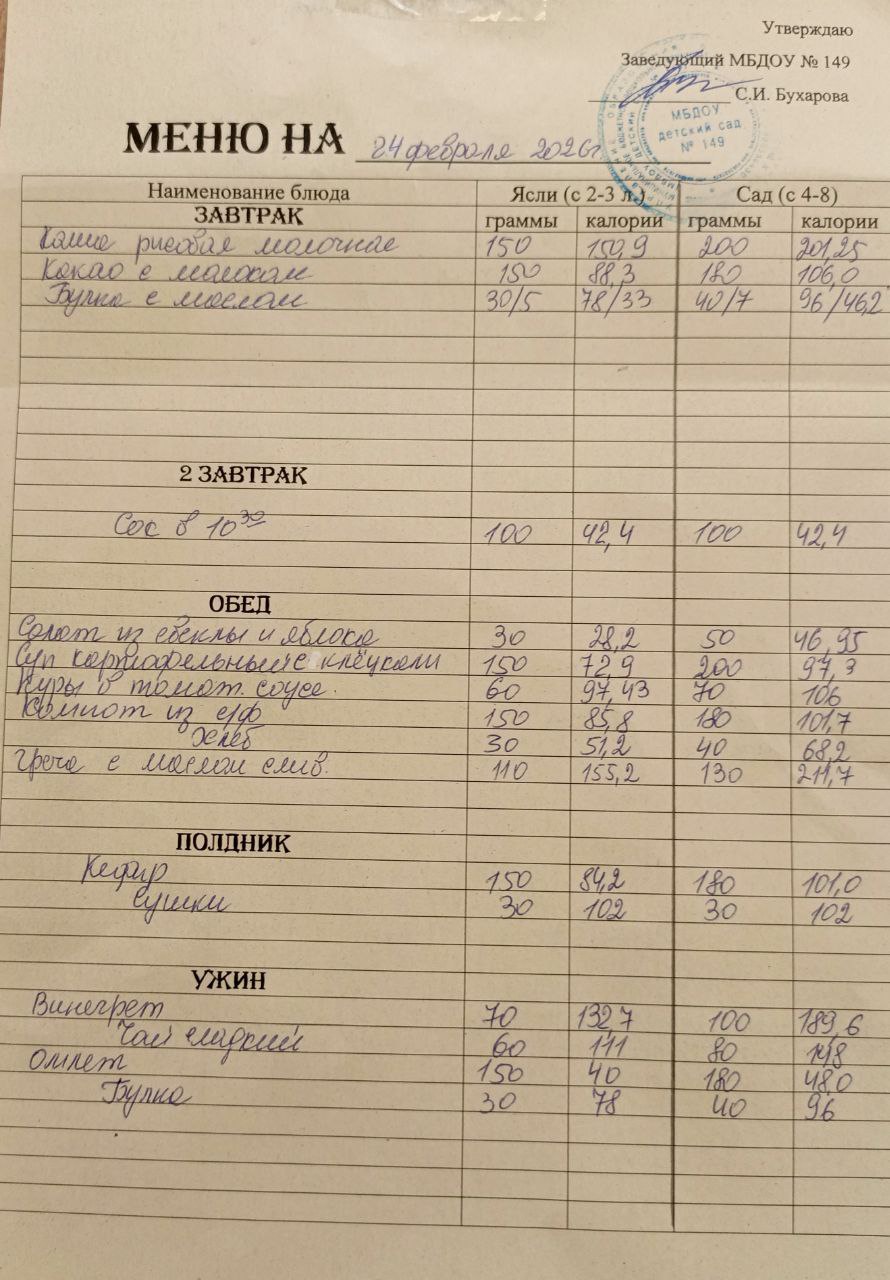 Утверждаю
Заведующий МБДОУ № 149
С.И. Бухарова
МБДОУ
детский сад
№ 149
МЕНЮ НА 24 февраля 2026г
Наименование блюда Ясли (с 2-3 л.) Сад (с 4-8)
ЗАВТРАК граммы калории граммы калории
Каша рисовая молочная 150 150,9 200 201,25
Какао с молоком 150 88,3 180 106,0
Булка с маслом 30/5 78/33 40/7 96/46,2
2 ЗАВТРАК
Сок в 10³⁰ 100 42,4 100 42,4
ОБЕД
Салат из свеклы и яблока 30 28,2 50 46,95
Суп картофельный с клёцками 150 72,9 200 97,3
Куры в томат. соусе. 60 97,43 70 106
Компот из с/ф 150 85,8 180 101,7
Хлеб 30 51,2 40 68,2
Греча с маслом слив. 110 155,2 130 211,7
ПОЛДНИК
Кефир 150 84,2 180 101,0
Сушки 30 102 30 102
УЖИН
Винегрет 70 132,7 100 189,6
Чай сладкий 60 111 80 148
Омлет 150 40 180 48,0
Булка 30 78 40 96